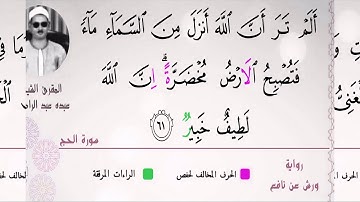 أَلَمْ تَرَ أَنَّ ٱللَّهَ أَنزَلَ مِنَ ٱلسَّمَآءِ مَآءً
فَتُصْبِحُ ٱلَارْضُ مُخْضَرَّةًۗ اِنَّ ٱللَّهَ
لَطِيفٌ خَبِيرٌ ٦١
المقرئ الشيخ
سورة الحج
رواية
ورش عن نافع
الحرف المخالف لحفص
الراءات المرققة